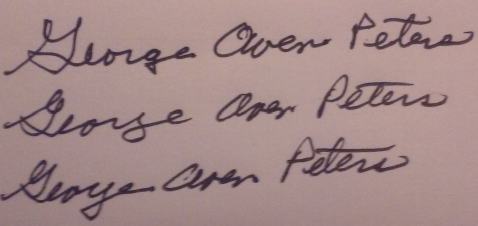 George Owen Peters
George Owen Peters
George Owen Peters